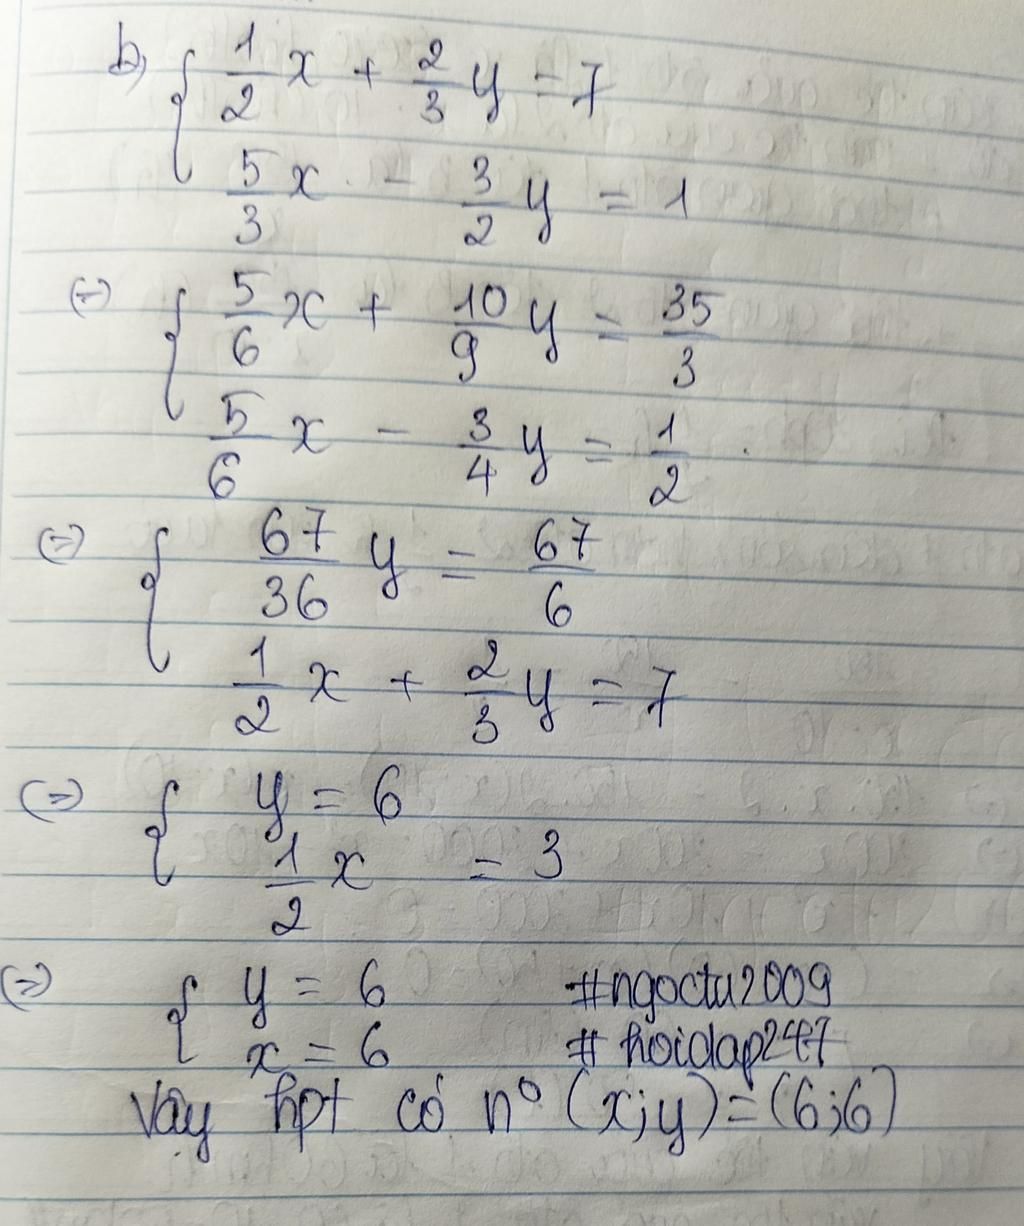 b, { 1/2 x + 2/3 y = 7
5/3 x - 3/2 y = 1
(=) { 5/6 x + 10/9 y = 35/3
5/6 x - 3/4 y = 1/2
(=) { 67/36 y = 67/6
1/2 x + 2/3 y = 7
(=) { y = 6
1/2 x = 3
(=) { y = 6 #ngoctu2009
x = 6 # hoidap247
Vậy hpt có n° (x;y)=(6;6)